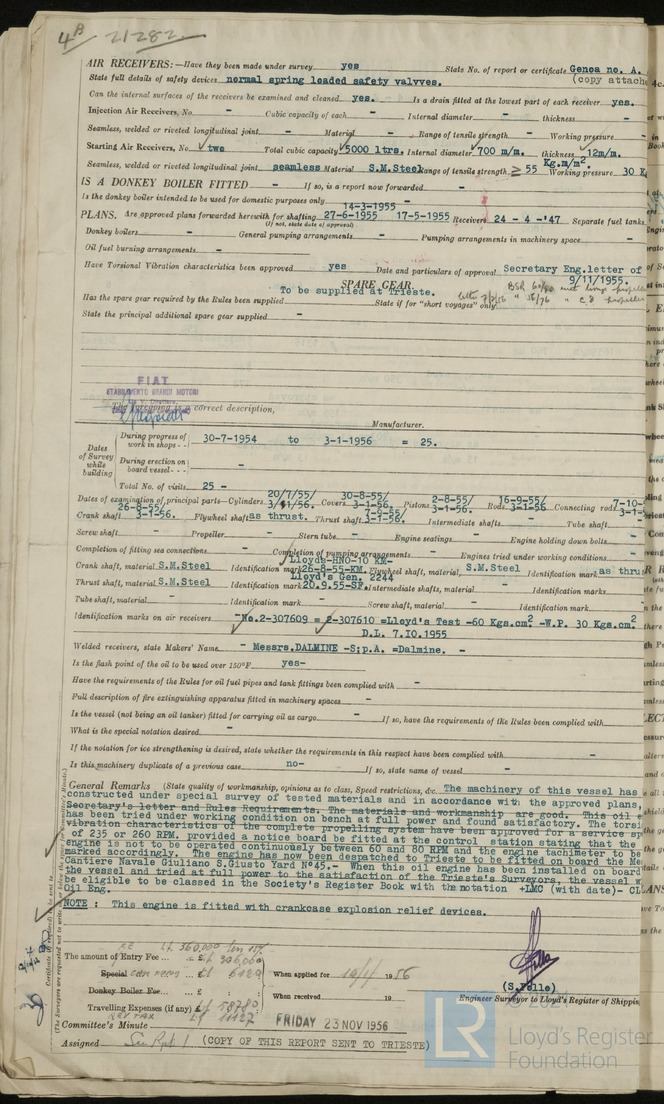 4B 21282
AIR RECEIVERS:—Have they been made under survey yes State No. of report or certificate Genoa no. A.
State full details of safety devices normal spring loaded safety valvves. (copy attache
Can the internal surfaces of the receivers be examined and cleaned yes. Is a drain fitted at the lowest part of each receiver yes.
Injection Air Receivers, No. - Cubic capacity of each - Internal diameter - thickness -
Seamless, welded or riveted longitudinal joint - Material - Range of tensile strength - Working pressure -
Starting Air Receivers, No. two Total cubic capacity 5000 ltrs. Internal diameter 700 m/m. thickness 12m/m.
Seamless, welded or riveted longitudinal joint seamless Material S.M.Steel Range of tensile strength ≥ 55 Kg.m/m². Working pressure 30 K
IS A DONKEY BOILER FITTED - If so, is a report now forwarded -
Is the donkey boiler intended to be used for domestic purposes only -
14-3-1955
PLANS. Are approved plans forwarded herewith for shafting 27-6-1955 17-5-1955 Receivers 24 - 4 -'47 Separate fuel tanks
(If not, state date of approval)
Donkey boilers - General pumping arrangements - Pumping arrangements in machinery space -
Oil fuel burning arrangements -
Have Torsional Vibration characteristics been approved yes Date and particulars of approval Secretary Eng.letter of
9/11/1955.
SPARE GEAR.
To be supplied at Trieste.
Has the spare gear required by the Rules been supplied State if for "short voyages" only
State the principal additional spare gear supplied -
FIAT
STABILIMENTO GRANDI MOTORI
The foregoing is a correct description,
Manufacturer.
Dates of Survey while building
During progress of work in shops - - 30-7-1954 to 3-1-1956 = 25.
During erection on board vessel - - - -
Total No. of visits 25 -
Dates of examination of principal parts—Cylinders 20/7/55/ 3/1/56. Covers 30-8-55/ 3-1-56. Pistons 2-8-55/ 3-1-56. Rods 16-9-55/ 3-1-56. Connecting rods 7-10- 3-1-
Crank shaft 26-8-55/ 3-1-56. Flywheel shaft as thrust. Thrust shaft 3-1-56. Intermediate shafts - Tube shaft
Screw shaft - Propeller - Stern tube - Engine seatings - Engine holding down bolts -
Completion of fitting sea connections - Completion of pumping arrangements - Engines tried under working conditions -
Crank shaft, material S.M.Steel Identification mark Lloyd's-HNO-10 KM- 26-8-55-KM. Flywheel shaft, material S.M.Steel Identification mark as thrus
Thrust shaft, material S.M.Steel Identification mark Lloyd's Gen. 2244 20.9.55-SP. Intermediate shafts, material - Identification marks -
Tube shaft, material - Identification mark - Screw shaft, material - Identification mark -
Identification marks on air receivers No.2-307609 = 2-307610 =Lloyd's Test -60 Kgs.cm² -W.P. 30 Kgs.cm²
D.L. 7.10.1955
Welded receivers, state Makers' Name - Messrs.DALMINE -S;p.A. =Dalmine. -
Is the flash point of the oil to be used over 150°F. yes-
Have the requirements of the Rules for oil fuel pipes and tank fittings been complied with -
Full description of fire extinguishing apparatus fitted in machinery spaces -
Is the vessel (not being an oil tanker) fitted for carrying oil as cargo - If so, have the requirements of the Rules been complied with
What is the special notation desired -
If the notation for ice strengthening is desired, state whether the requirements in this respect have been complied with -
Is this machinery duplicate of a previous case no- If so, state name of vessel -
General Remarks (State quality of workmanship, opinions as to class, Speed restrictions, &c. The machinery of this vessel has
constructed under special survey of tested materials and in accordance with the approved plans,
Secretary's letter and Rules Requirements. The materials and workmanship are good. This oil e
has been tried under working condition on bench at full power and found satisfactory. The torsi
vibration characteristics of the complete propelling system have been approved for a service sp
of 235 or 260 RPM. provided a notice board be fitted at the control station stating that the
engine is not to be operated continuously between 60 and 80 RPM and the engine tachimeter to be
marked accordingly. The engine has now been despatched to Trieste to be fitted on board the
Cantiere Navale Giuliano S.Giusto Yard N°45.- When this oil engine has been installed on board
the vessel and tried at full power to the satisfaction of the Trieste's Surveyors, the vessel w
be eligible to be classed in the Society's Register Book with the notation +LMC (with date)- CL
Oil Eng.
NOTE : This engine is fitted with crankcase explosion relief devices.
The amount of Entry Fee ...
Special
Donkey Boiler Fee... £ : :
Travelling Expenses (if any)
When applied for 1956
When received 19
(S.Pello)
Engineer Surveyor to Lloyd's Register of Shippin
Committee's Minute FRIDAY 23 NOV 1956
Assigned See Rpt 1 (COPY OF THIS REPORT SENT TO TRIESTE)
LR
Lloyd's Register
Foundation